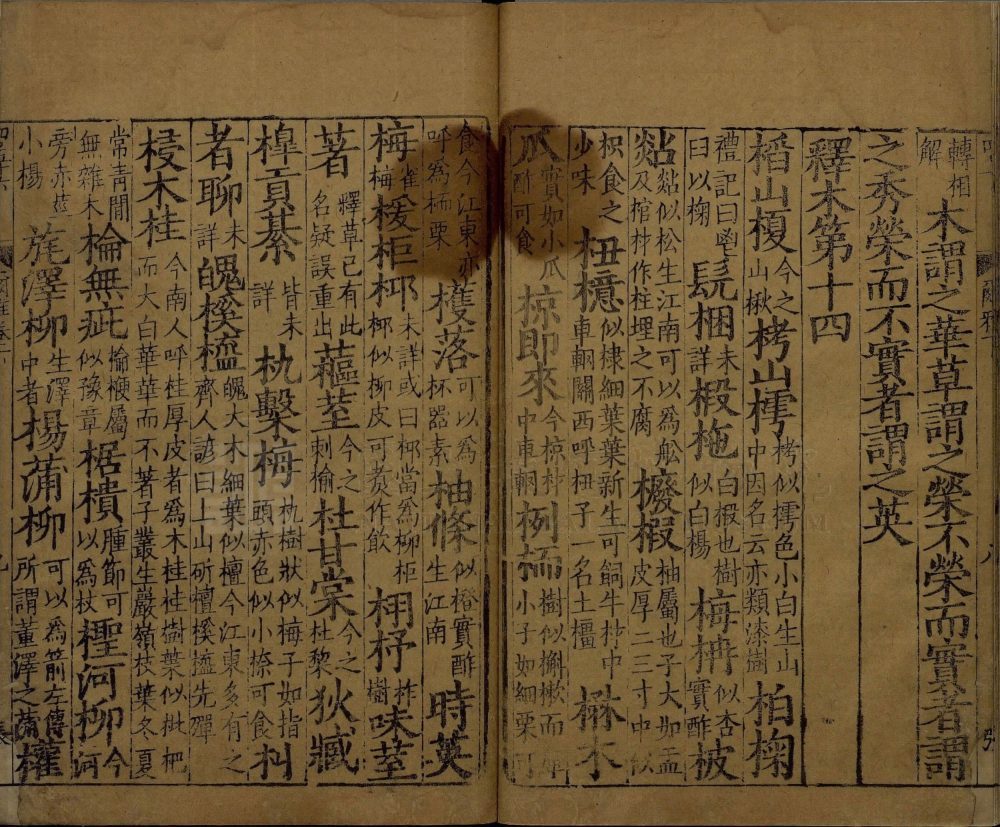 轉相解木謂之華草謂之榮不榮而實者謂
之秀榮而不實者謂之英
釋木第十四
槄山榎今之山楸栲山樗栲似樗色小白生山中因名云亦類漆樹柏椈
禮記曰鬯臼以椈髡梱未詳椴柂白椴也樹似白楊梅柟似杏實酢柀
煔煔似松生江南可以爲舩及棺材作柱埋之不腐櫠椵柚屬也子大如盂皮厚二三寸中似
枳食之少味杻檍似棣細葉葉新生可飼牛材中車輞關西呼杻子一名土橿楙木
瓜實如小瓜酢可食椋即來今椋材中車輞栵栭樹似槲樕而庳小子如細栗可
食今江東亦呼爲栭栗檴落可以爲杯器素柚條似橙實酢生江南時英
梅雀梅楥柜桏未詳或曰桏當爲柳柜桏似柳皮可煑作飲栩杼柞樹味荎
著釋草已有此名疑誤重出藲荎今之刺榆杜甘棠今之杜黎狄臧
橰貢綦皆未詳朹檕梅朹樹狀似梅子如指頭赤色似小柰可食朻
者聊未詳魄榽橀魄大木細葉似檀今江東多有之齊人諺曰上山斫檀榽橀先殫
梫木桂今南人呼桂厚皮者爲木桂桂樹葉似枇杷而大白華華而不著子叢生巖嶺枝葉冬夏
常青間無雜木棆無疵棆梗屬似豫章椐樻腫節可以爲杖檉河柳今河
旁赤莖小楊旄澤柳生澤中者楊蒲柳可以爲箭左傳所謂董澤之蒲權